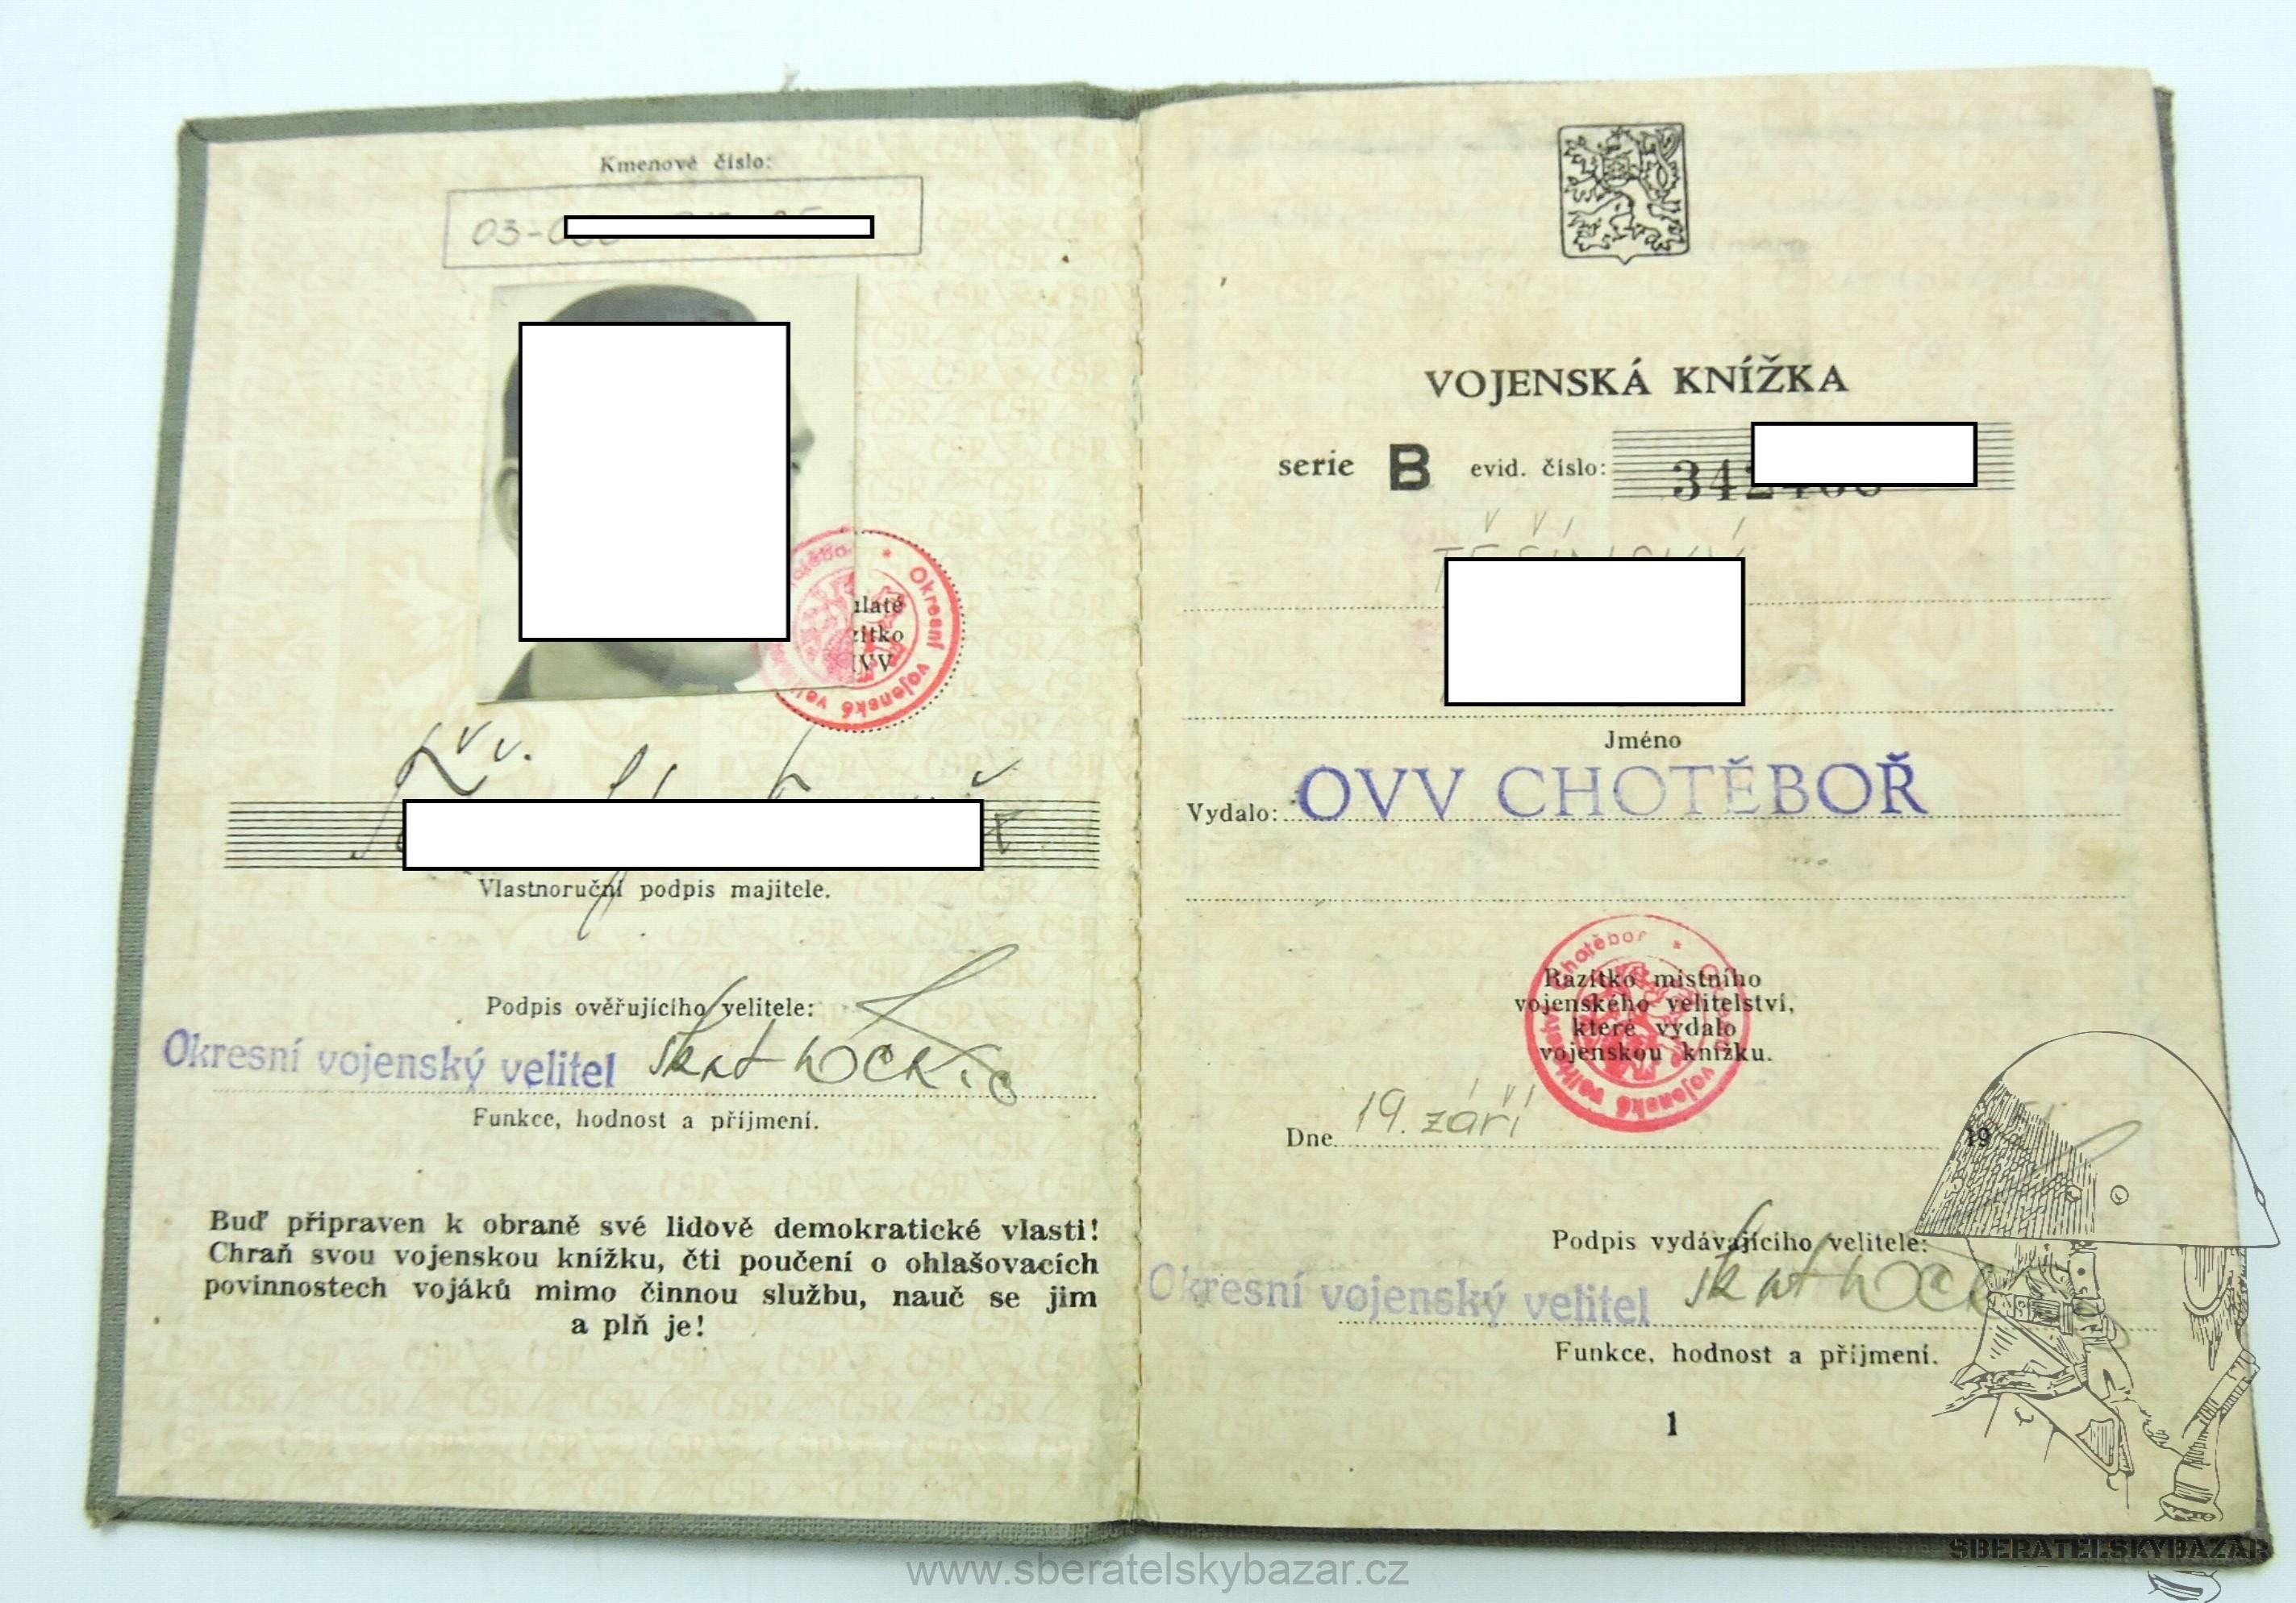 Kmenové číslo:
03-0
Okresní vojenské
Vlastnoruční podpis majitele.
Podpis ověřujícího velitele:
Okresní vojenský velitel
Funkce, hodnost a příjmení.
Buď připraven k obraně své lidově demokratické vlasti!
Chraň svou vojenskou knížku, čti poučení o ohlašovacích
povinnostech vojáků mimo činnou službu, nauč se jim
a plň je!
VOJENSKÁ KNÍŽKA
serie B evid. číslo:
Jméno
Vydalo: OVV CHOTĚBOŘ
Razítko místního
vojenského velitelství,
které vydalo
vojenskou knížku.
Dne 19. září 19
Podpis vydávajícího velitele:
Okresní vojenský velitel
Funkce, hodnost a příjmení.
1
SBERATELSKYBAZAR
www.sberatelskybazar.cz